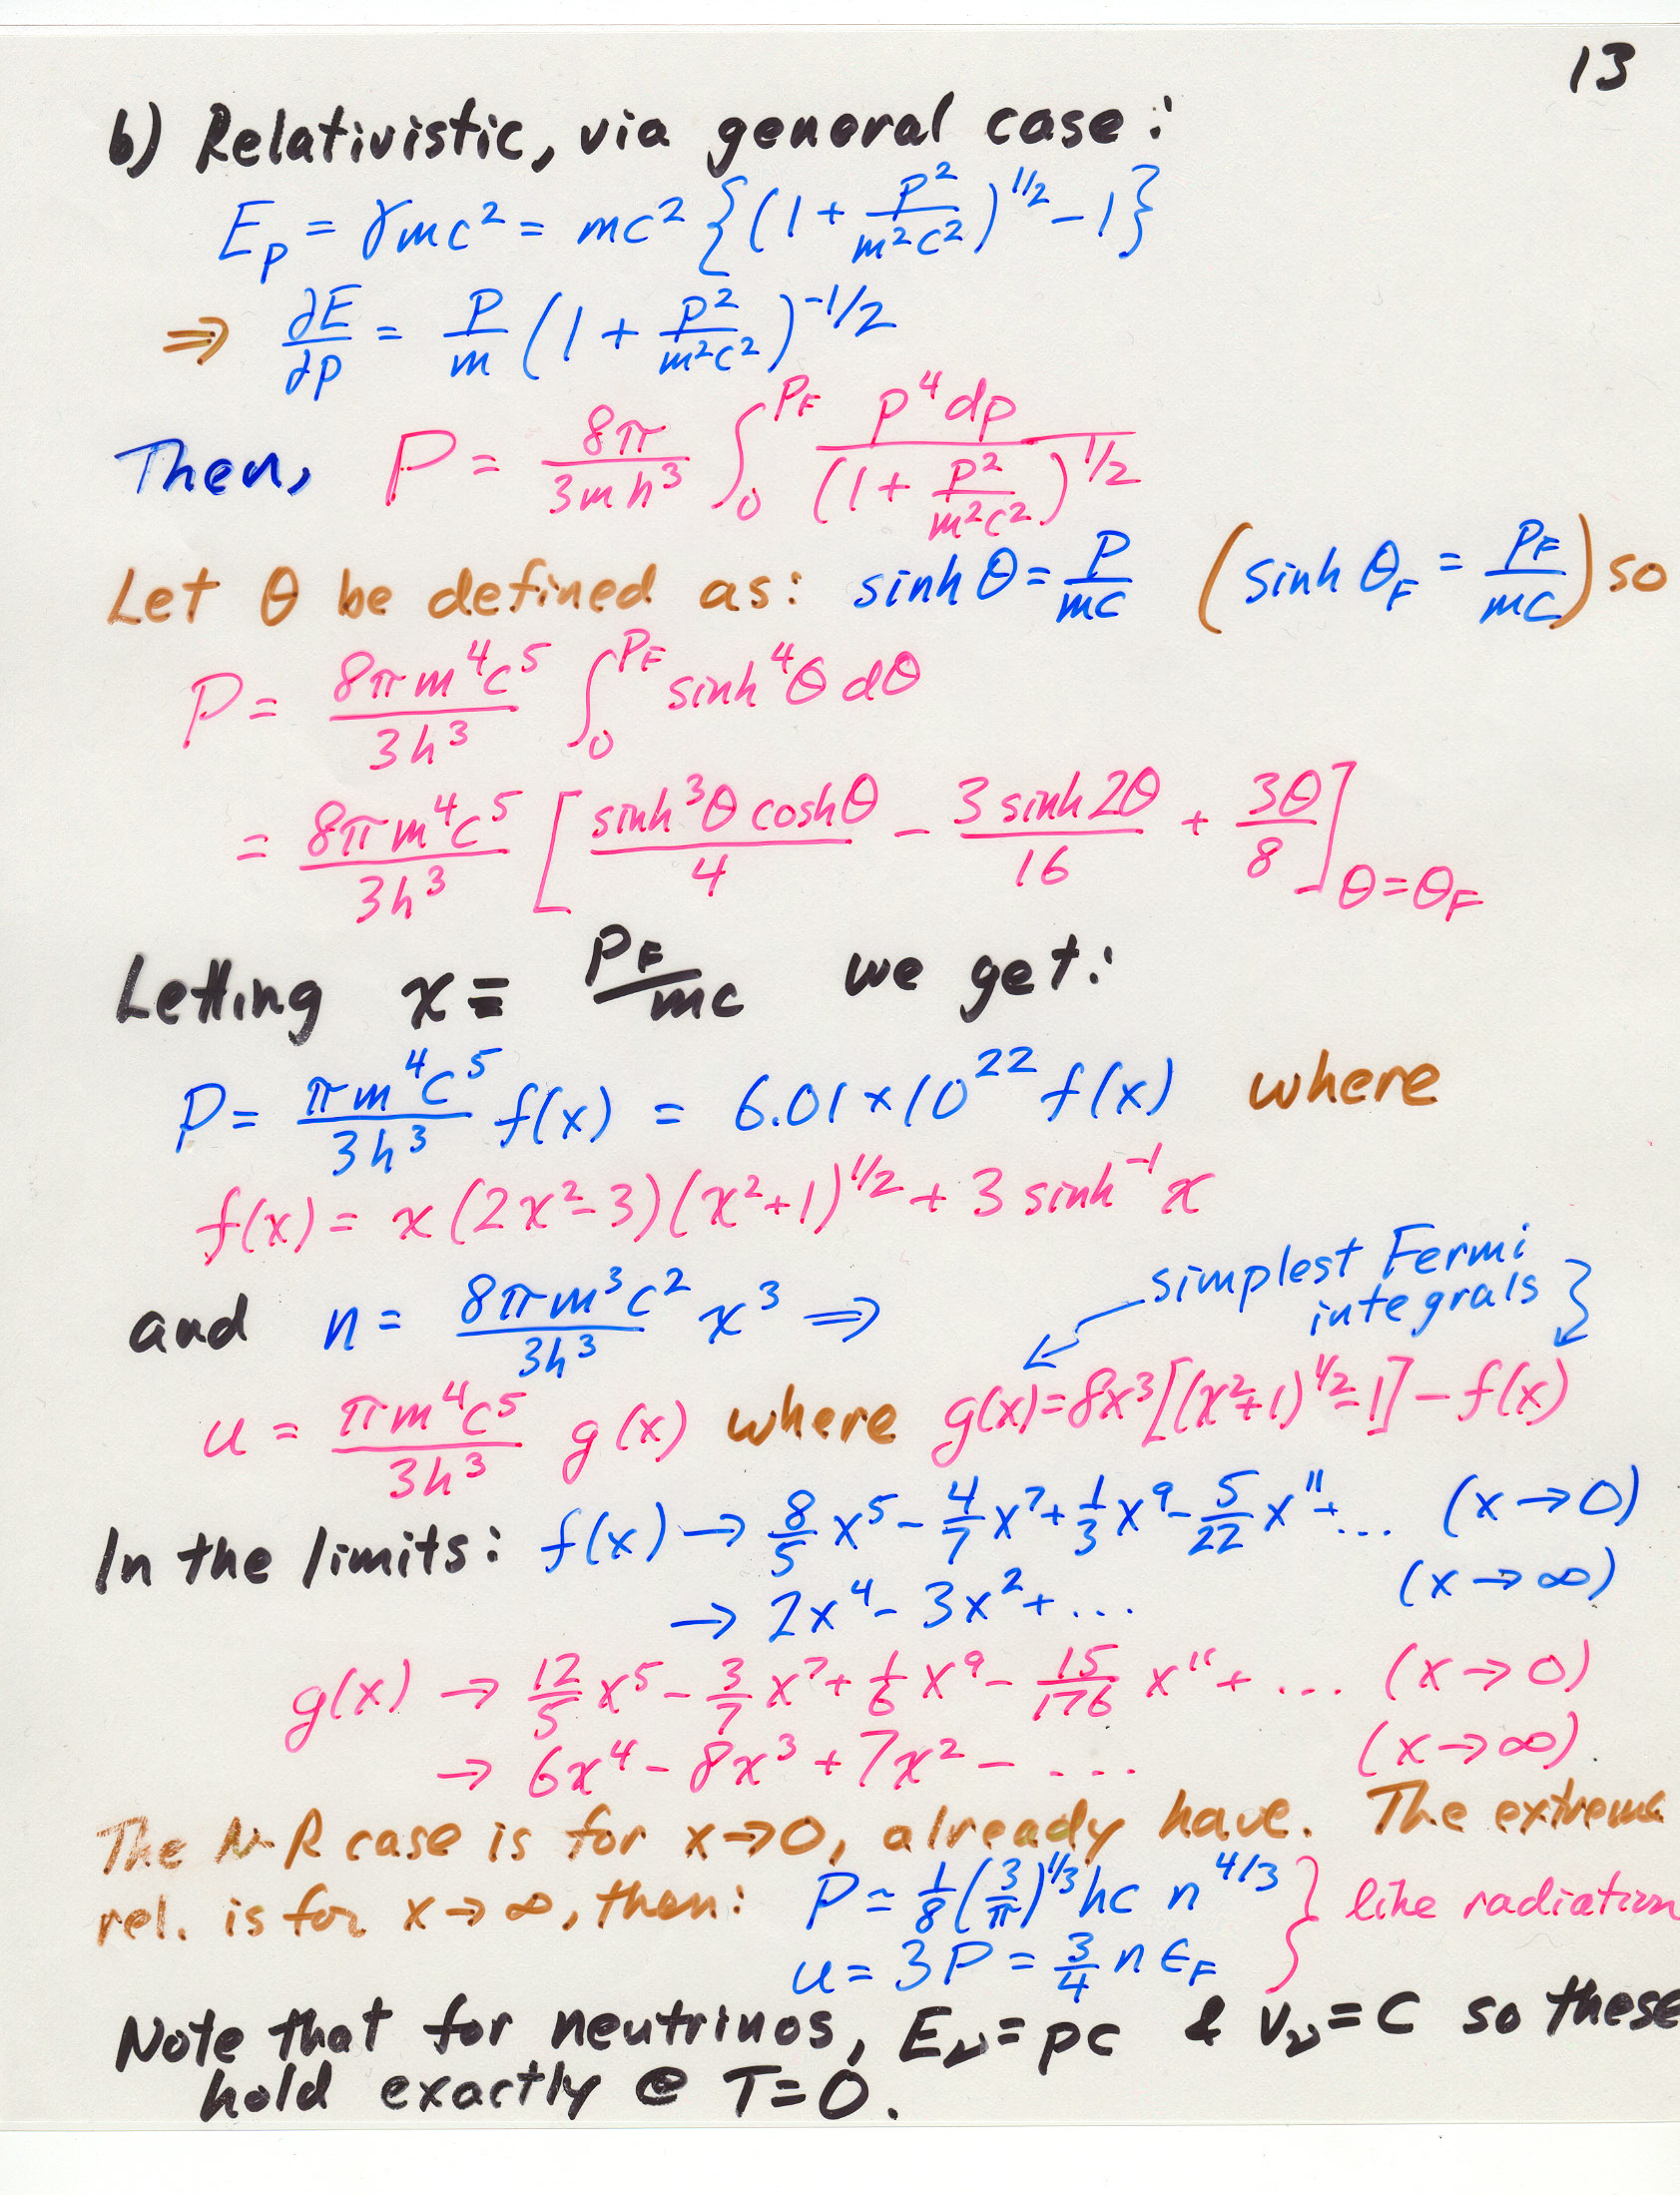 13
b) Relativistic, via general case:
E_p = γmc² = mc² {(1 + p²/m²c²)^{1/2} - 1}
⇒ ∂E/∂p = p/m (1 + p²/m²c²)^{-1/2}
Then, P = 8π/3mh³ ∫_0^{p_F} p⁴dp/(1 + p²/m²c²)^{1/2}
Let θ be defined as: sinh θ = p/mc (sinh θ_F = p_F/mc) so
P = 8πm⁴c⁵/3h³ ∫_0^{p_F} sinh⁴θ dθ
= 8πm⁴c⁵/3h³ [sinh³θ coshθ/4 - 3 sinh 2θ/16 + 3θ/8]_{θ=θ_F}
Letting x = p_F/mc we get:
P = πm⁴c⁵/3h³ f(x) = 6.01×10²² f(x) where
f(x) = x(2x²-3)(x²+1)^{1/2} + 3 sinh⁻¹x
simplest Fermi
integrals
and n = 8πm³c²/3h³ x³ ⇒
u = πm⁴c⁵/3h³ g(x) where g(x) = 8x³[(x²+1)^{1/2} - 1] - f(x)
In the limits: f(x) → 8/5 x⁵ - 4/7 x⁷ + 1/3 x⁹ - 5/22 x¹¹ + ... (x → 0)
→ 2x⁴ - 3x² + ... (x → ∞)
g(x) → 12/5 x⁵ - 3/7 x⁷ + 1/6 x⁹ - 15/176 x¹¹ + ... (x → 0)
→ 6x⁴ - 8x³ + 7x² - .... (x → ∞).
The N-R case is for x → 0, already have. The extreme
rel. is for x → ∞, then: P ≃ 1/8 (3/π)^{1/3} hc n^{4/3} } like radiation
u = 3P = 3/4 n ϵ_F
Note that for neutrinos, E_ν = pc & v_ν = c so these
hold exactly @ T=0.